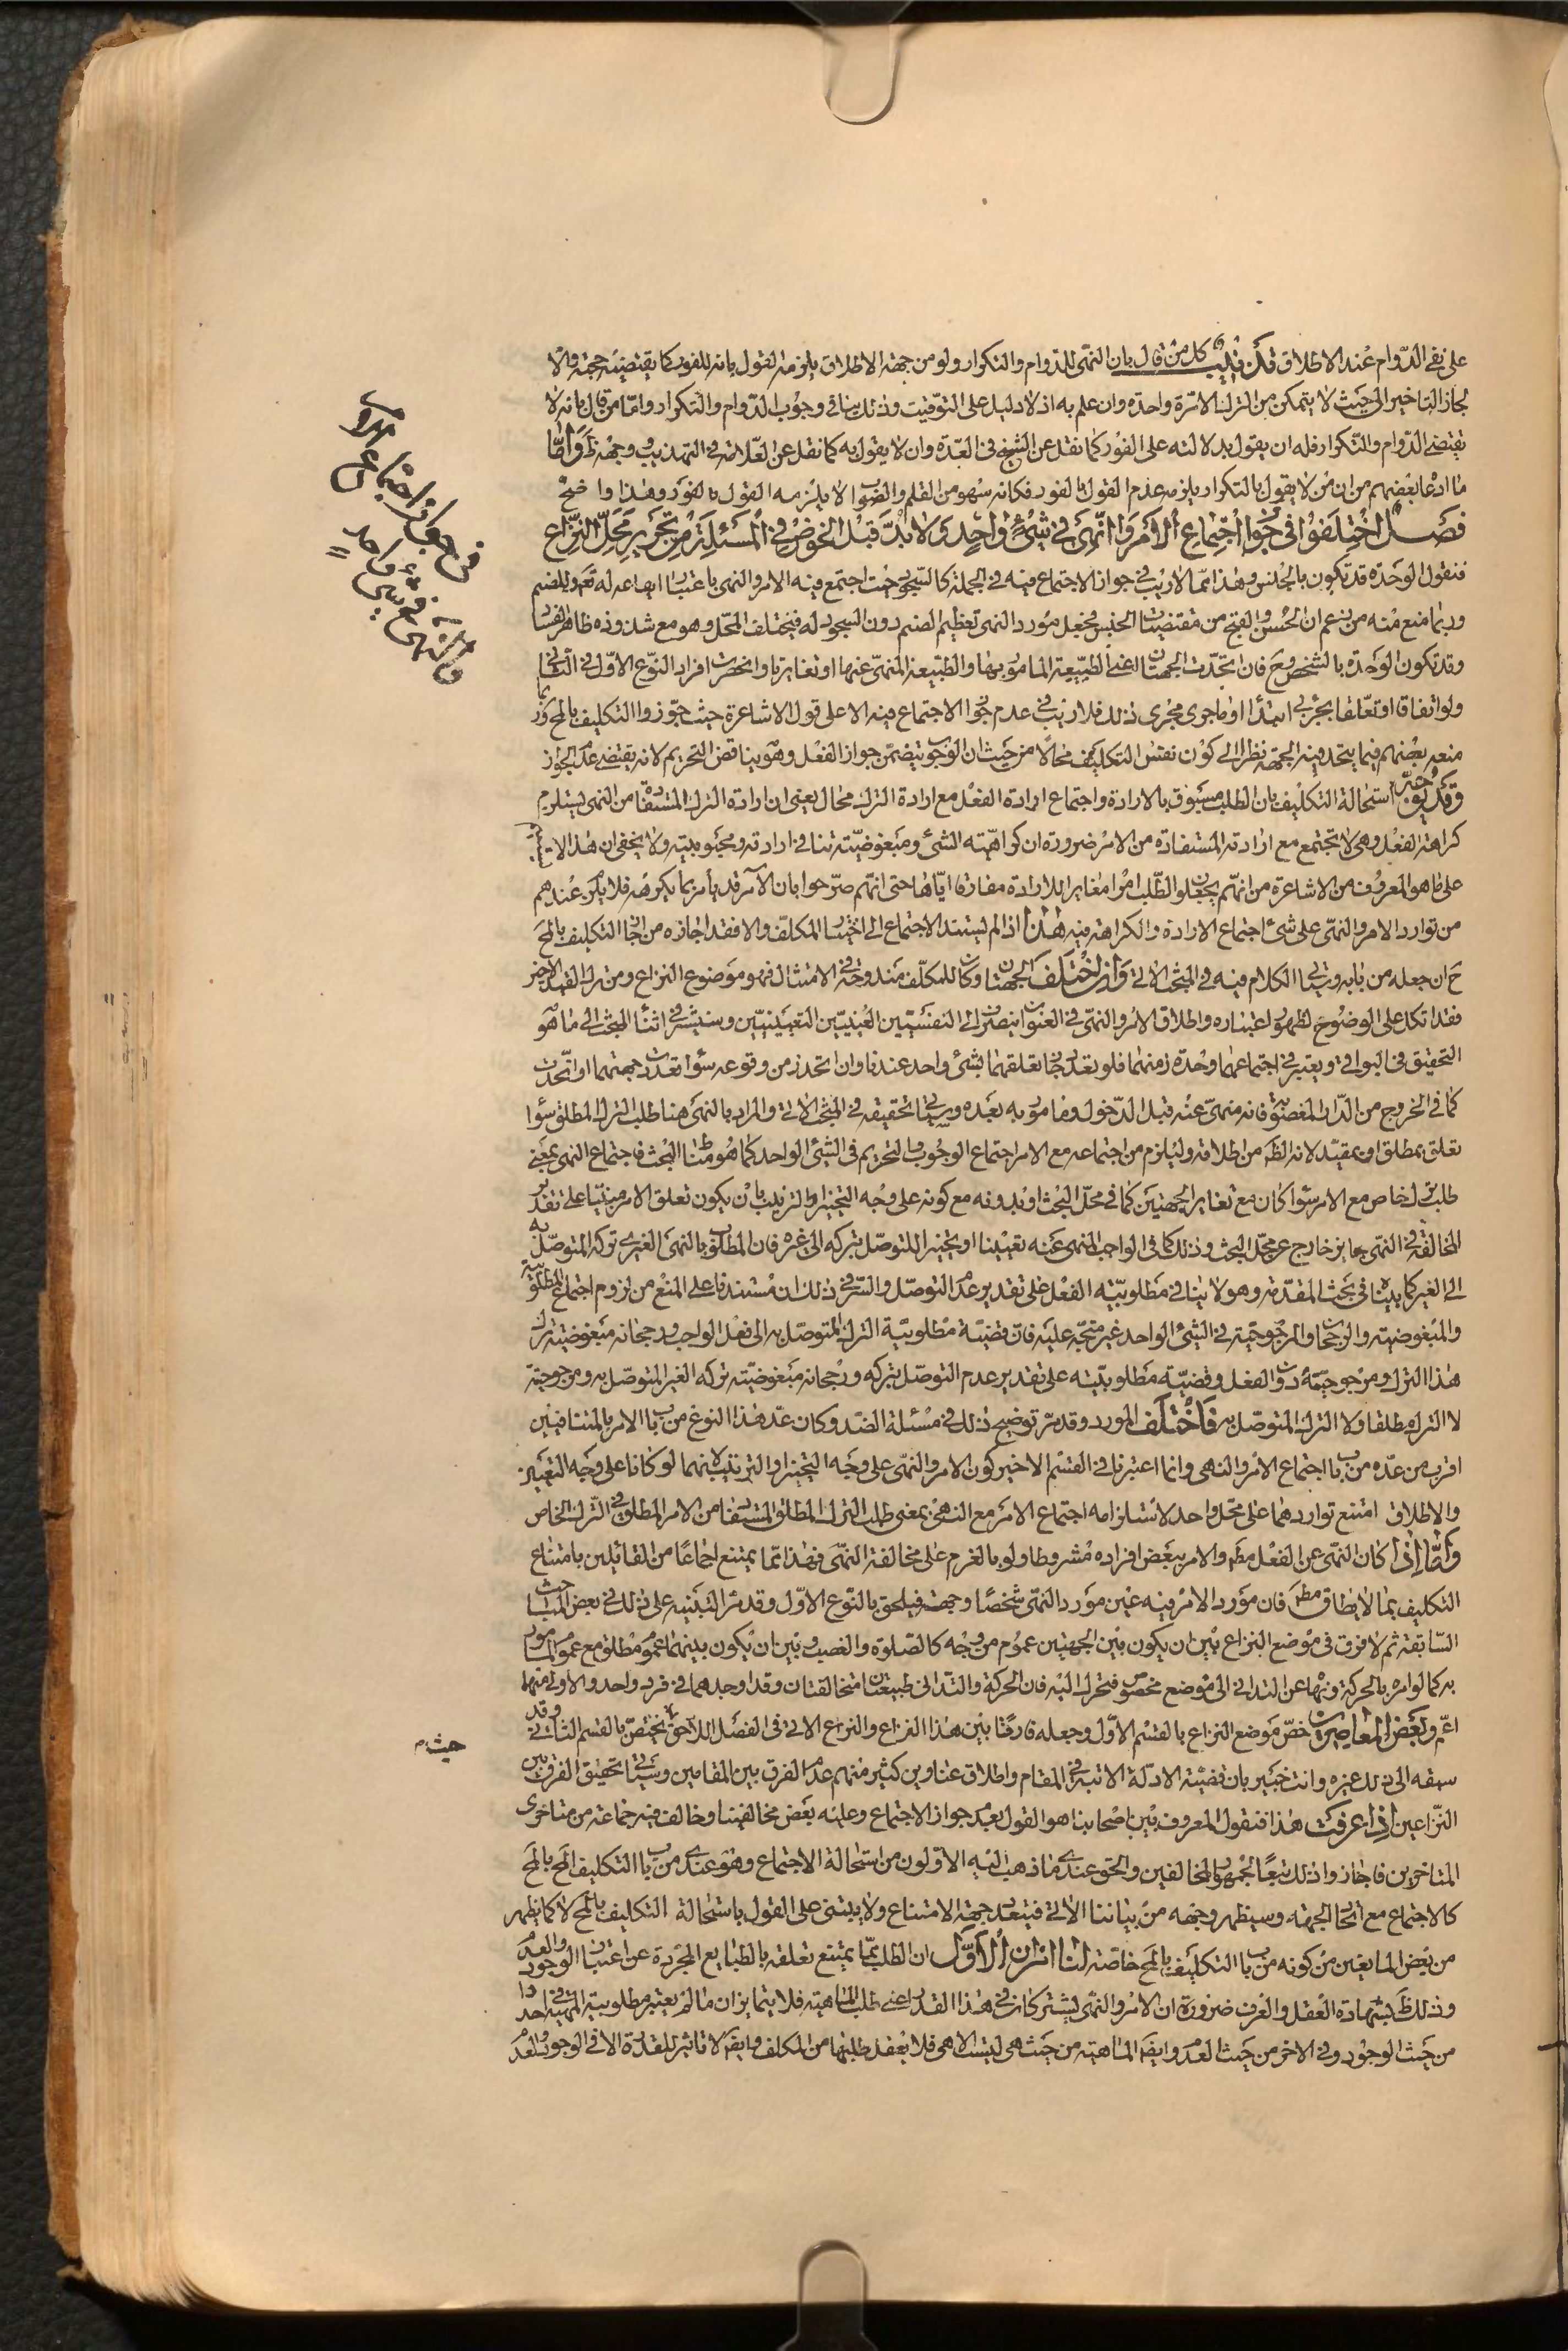 على نفى الدّوام عند الاطلاق تذنيب كل من قال بان النهى للدّوام والتكرار ولو من جهة الاطلاق يلزمه القول بانه للفور كما يقتضيه حجته والّا
لجاز التاخير الى حيث لا يتمكن من الترك الا مرّة واحدة وان علم به اذ لا دليل على التوقيت وذلك ينافى وجوب الدّوام والتكرار وامّا من قال بانه لا
يقتضى الدّوام والتكرار فله ان يقول بدلالته على الفور كما نقل عن الشيخ فى العدّة وان لا يقول به كما نقل عن العلّامة فى التهذيب ووجهه ظ وامّا
ما ادعا بعضهم من ان من لا يقول بالتكرار يلزمه عدم القول بالفور فكانه سهو من القلم والصّواب الا يلزمه القول بالفور وهذا واضح
فصل اختلفوا فى جواز اجتماع الامر والنّهى فى شىء واحد ولا بدّ قبل الخوض فى المسئلة من تحرير محلّ النّزاع
فنقول الوحدة قد تكون بالجنس وهذا ممّا لا ريب فى جواز الاجتماع فيه فى الجملة كالسّجود حيث اجتمع فيه الامر والنهى باعتبار ايقاعه له تعالى وللصنم
وربما منع منه من يزعم ان الحسن والقبح من مقتضيات الجنس فجعل مورد النهى تعظيم الصنم دون السجود له فيختلف المحلّ وهو مع شذوذه ظاهر الفساد
وقد تكون الوحدة بالشخص وح فان اتحدت الجهتان اعنى الطبيعة المامور بها والطبيعة المنهىّ عنها او تغايرتا وانحصرت افراد النّوع الاوّل فى الثانى
ولو اتفاقا او تعلّقا بجزئى ابتدا او ما جرى مجرى ذلك فلا ريب فى عدم جواز الاجتماع فيه الا على قول الاشاعرة حيث جوّزوا التكليف بالمح وربما
منعه بعضهم فيما يتحد فيه الجهة نظرا الى كون نفس التكليف محالا من حيث ان الوجوب يتضمّن جواز الفعل وهو يناقض التحريم لانه يقتضى عدم الجواز
وقد يوجّه استحالة التكليف بان الطلب مسبوق بالارادة واجتماع ارادة الفعل مع ارادة الترك محال يعنى ان ارادة الترك المستفادة من النهى يستلزم
كراهة الفعل وهى لا تجتمع مع ارادته المستفادة من الامر ضرورة ان كراهيّة الشىء ومبغوضيّته تنافى ارادته ومحبوبيته ولا يخفى ان هذا لا يتمّ
على ما هو المعروف من الاشاعرة من انهم يجعلو الطّلب امرا مغايرا للارادة مفارقا ايّاها حتى انهم صرّحوا بان الآمر قد يامر بما يكرهه فلا يلزم عندهم
من توارد الامر والنهى على شىء اجتماع الارادة والكراهة فيه هذا اذا لم يستند الاجتماع الى اختيار المكلّف والا فقد اجازه من اجاز التكليف بالمح
ح ان جعله من بابه وسياتى الكلام فيه فى المبحث الاتى وان اختلفت الجهتان وكان للمكلّف مندوحة فى الامتثال فهو موضوع النزاع ومن ترك القيد الاخير
فقد اتكل على الوضوح لظهور اعتباره واطلاق الامر والنهى فى العنوان ينصرف الى النفسيّين العينيّين التعيينيّين وسنشير فى اثناء البحث الى ما هو
التحقيق فى البواقى ويعتبر فى اجتماعهما وحدة زمنهما فلو تعدد جاز تعلقهما بشىء واحد عندنا وان اتحد زمن وقوعه سواء تعددت جهتهما او اتّحدت
كما فى الخروج من الدّار المغصوبة فانه منهىّ عنه قبل الدّخول ومامور به بعده وسياتى تحقيقه فى المبحث الاتى والمراد بالنهى هنا طلب الترك المطلق سواء
تعلق بمطلق او بمقيّد لانه الظ من اطلاقه وليلزم من اجتماعه مع الامر اجتماع الوجوب والتحريم فى الشىء الواحد كما هو مظنّة البحث فاجتماع النهى بمعنى
طلب ترك خاص مع الامر سواء كان مع تغاير الجهتين كما فى محلّ البحث او بدونه مع كونه على وجه التخيير او الترتيب بان يكون تعلق الامر مبنيّا على تقدير
المخالفة فى النهى جايز خارج عن محلّ البحث وذلك كما فى الواجب المنهى عنه تعيينا او تخييرا للتوصّل بتركه الى غيره فان المطلوب بالنهى الغيرى تركه المتوصّل به
الى الغير كما بيناه فى بحث المقدّمة وهو لا ينافى مطلوبيّة الفعل على تقدير عدم التوصّل والسّر فى ذلك ان مستندنا على المنع من لزوم اجتماع المطلوبية
والمبغوضيته والرجحان والمرجوحيّة فى الشىء الواحد غير متجّه عليه فان قضيّة مطلوبيّة الترك المتوصّل به الى فعل الواجب ورجحانه مبغوضيته ترك
هذا الترك ومرجوحيته دون الفعل وقضيّة مطلوبيّته على تقدير عدم التوصّل بتركه ورجحانه مبغوضيّته تركه الغير المتوصّل به ومرجوحيته
لا الترك مطلقا ولا الترك المتوصّل به فاختلف المورد وقد مرّ توضيح ذلك فى مسئلة الضّد وكان عدّ هذا النوع من باب الامر بالمتنافيين
اقرب من عدّه من باب اجتماع الامر والنهى وانما اعتبرنا فى القسم الاخير كون الامر والنهى على وجه التخيير او الترتيب لانهما لو كانا على وجه التعيين
والاطلاق امتنع تواردهما على محلّ واحد لاستلزامه اجتماع الامر مع النهى بمعنى طلب الترك المطلق المستفاد من الامر المطلق فى الترك الخاص
وامّا اذا كان النهى عن الفعل مطم والامر ببعض افراده مشروطا ولو بالعزم على مخالفة النهى فهذا ممّا يمتنع اجماعا من القائلين بامتناع
التكليف بما لا يطاق مطم فان مورد الامر فيه عين مورد النهى شخصًا وجهة فيلحق بالنّوع الاوّل وقد مرّ التنبيه على ذلك فى بعض المباحث
السّابقة ثم لا فرق فى موضع النزاع بين ان يكون بين الجهتين عموم من وجه كالصّلوة والغصب وبين ان يكون بينهما عموم مطلق مع عموم المامور
به كما لو امره بالحركة ونهاه عن التدانى الى موضع مخصوص فتحرك اليه فان الحركة والتدانى طبيعتان متخالفتان وقد اوجدهما فى فرد واحد والاولى منهما
اعمّ وبعض المعاصرين خصّ موضع النزاع بالقسم الاوّل وجعله فارقا بين هذا النزاع والنزاع الاتى فى الفصل اللاحق حيث يختصّ بالقسم الثانى وقد
سبقه الى ذلك غيره وانت خبير بان قضيّة الادلّة الاتية فى المقام واطلاق عناوين كثير منهم عدم الفرق بين المقامين وسياتى تحقيق الفرق بين
النّزاعين اذا عرفت هذا فنقول المعروف بين اصحابنا هو القول بعدم جواز الاجتماع وعليه بعض مخالفينا وخالف فيه جماعة من متاخرى
المتاخرين فاجازوا ذلك تبعًا لجمهور المخالفين والحق عندى ما ذهب اليه الاوّلون من استحالة الاجتماع وهو عندى من باب التكليف المح بالمح
كالاجتماع مع اتحاد الجهة وسيظهر وجهه من بياننا الاتى فيتعدد جهة الامتناع ولا يبتنى على القول باستحالة التكليف بالمح لا كما يظهر
من بعض المانعين من كونه من باب التكليف بالمح خاصّة لنا امران الاوّل ان الطلب ممّا يمتنع تعلقه بالطبايع المجرّدة عن اعتبار الوجود والعدم
وذلك ظ بشهادة العقل والعرف ضرورة ان الامر والنهى يشتركان فى هذا القدر اعنى طلب الماهية فلا يتمايزان ما لم يعتبر مطلوبية المهية فى احدهما
من حيث الوجود وفى الاخر من حيث العدم وايضم الماهية من حيث هى ليست الا هى فلا يعقل طلبها من المكلف وايضم لا تاثير للقدرة الا فى الوجود والعدم
فى جواز اجتماع الامر
والنهى فى شىء واحد
حيث